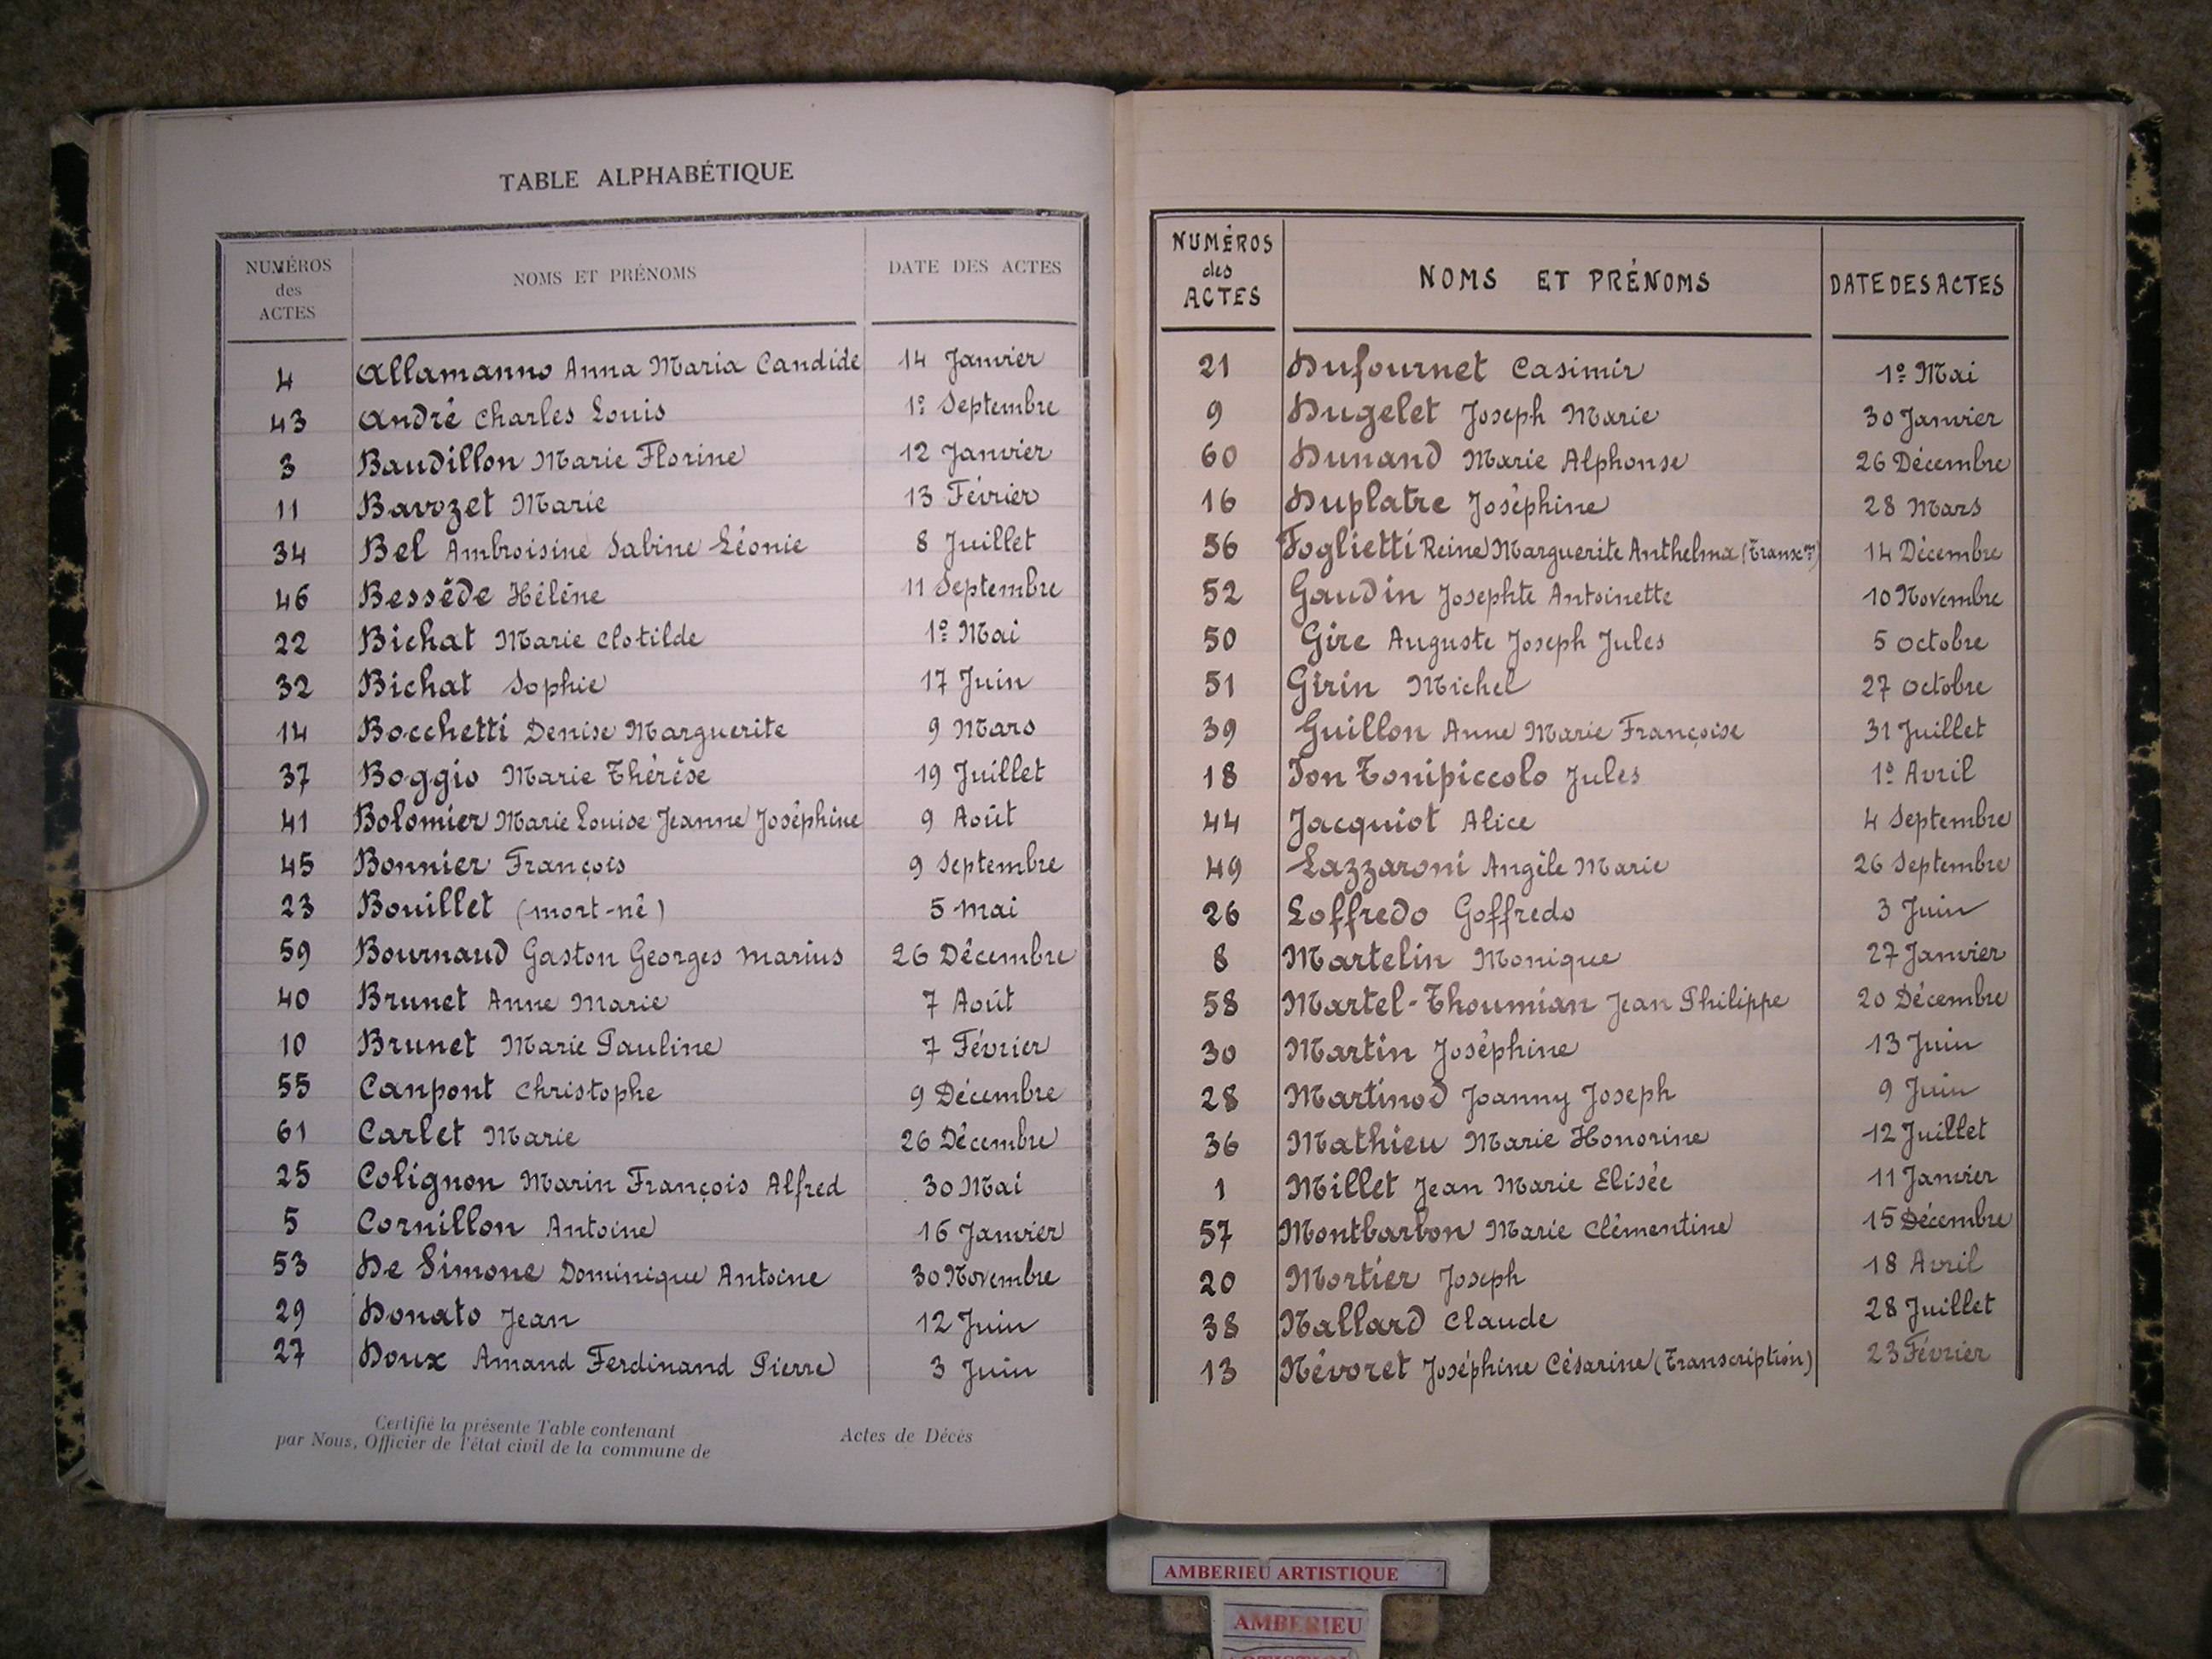 TABLE ALPHABÉTIQUE
NUMÉROS des ACTES NOMS ET PRÉNOMS DATE DES ACTES
4 Allamanno Anna Maria Candide 14 Janvier
43 André Charles Louis 1º Septembre
3 Baudillon Marie Florine 12 Janvier
11 Bavozet Marie 13 Février
34 Bel Ambroisine Sabine Léonie 8 Juillet
46 Bessède Hélène 11 Septembre
22 Bichat Marie Clotilde 1º Mai
32 Bichat Sophie 17 Juin
14 Bocchetti Denise Marguerite 9 Mars
37 Boggio Marie Thérèse 19 Juillet
41 Bolomier Marie Louise Jeanne Joséphine 9 Août
45 Bonnier François 9 Septembre
23 Bouillet (mort-né) 5 mai
59 Bournaud Gaston Georges Marius 26 Décembre
40 Brunet Anne Marie 7 Août
10 Brunet Marie Pauline 7 Février
55 Canpont Christophe 9 Décembre
61 Carlet Marie 26 Décembre
25 Colignon Marin François Alfred 30 Mai
5 Cornillon Antoine 16 Janvier
53 De Simone Dominique Antoine 30 Novembre
29 Donato Jean 12 Juin
27 Doux Amand Ferdinand Pierre 3 Juin
Certifié la présente Table contenant Actes de Décès
par Nous, Officier de l'état civil de la commune de
NUMÉROS des ACTES NOMS ET PRÉNOMS DATE DES ACTES
21 Dufournet Casimir 1º Mai
9 Dugelet Joseph Marie 30 Janvier
60 Dunand Marie Alphonse 26 Décembre
16 Duplatre Joséphine 28 Mars
56 Foglietti Reine Marguerite Anthelma (Transcon) 14 Décembre
52 Gaudin Josephte Antoinette 10 Novembre
50 Gire Auguste Joseph Jules 5 octobre
51 Girin Michel 27 octobre
39 Guillon Anne Marie Françoise 31 Juillet
18 Ion Tonipiccolo Jules 1º Avril
44 Jacquiot Alice 4 Septembre
49 Lazzaroni Angèle Marie 26 Septembre
26 Loffredo Goffredo 3 Juin
8 Martelin Monique 27 Janvier
58 Martel-Thoumian Jean Philippe 20 Décembre
30 Martin Joséphine 13 Juin
28 Martinod Joanny Joseph 9 Juin
36 Mathieu Marie Honorine 12 Juillet
1 Millet Jean Marie Elisée 11 Janvier
57 Montbarbon Marie Clémentine 15 Décembre
20 Mortier Joseph 18 Avril
38 Nallard Claude 28 Juillet
13 Névoret Joséphine Césarine (Transcription) 23 Février
AMBERIEU ARTISTIQUE
AMBERIEU